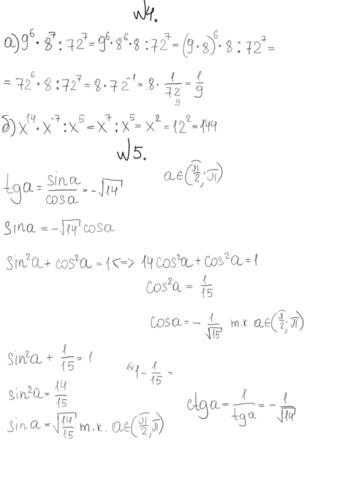 №4.
а) 9⁶·8⁷:72⁷=9⁶·8⁶·8:72⁷=(9·8)⁶·8:72⁷=
=72⁶·8:72⁷=8·72⁻¹=8·1/72 9=1/9
б) x¹⁴·x⁻⁷:x⁵=x⁷:x⁵=x²=12²=144
№5.
tga=sina/cosa=-√14 a∈(π/2;π)
sina=-√14 cosa
sin²a+cos²a=1<=>14cos²a+cos²a=1
cos²a=1/15
cosa=-1/√15 т.к. a∈(π/2;π)
sin²a+1/15=1 1-1/15=
sin²a=14/15
sina=√14/15 т.к. a∈(π/2;π)
ctga=1/tga=-1/√14